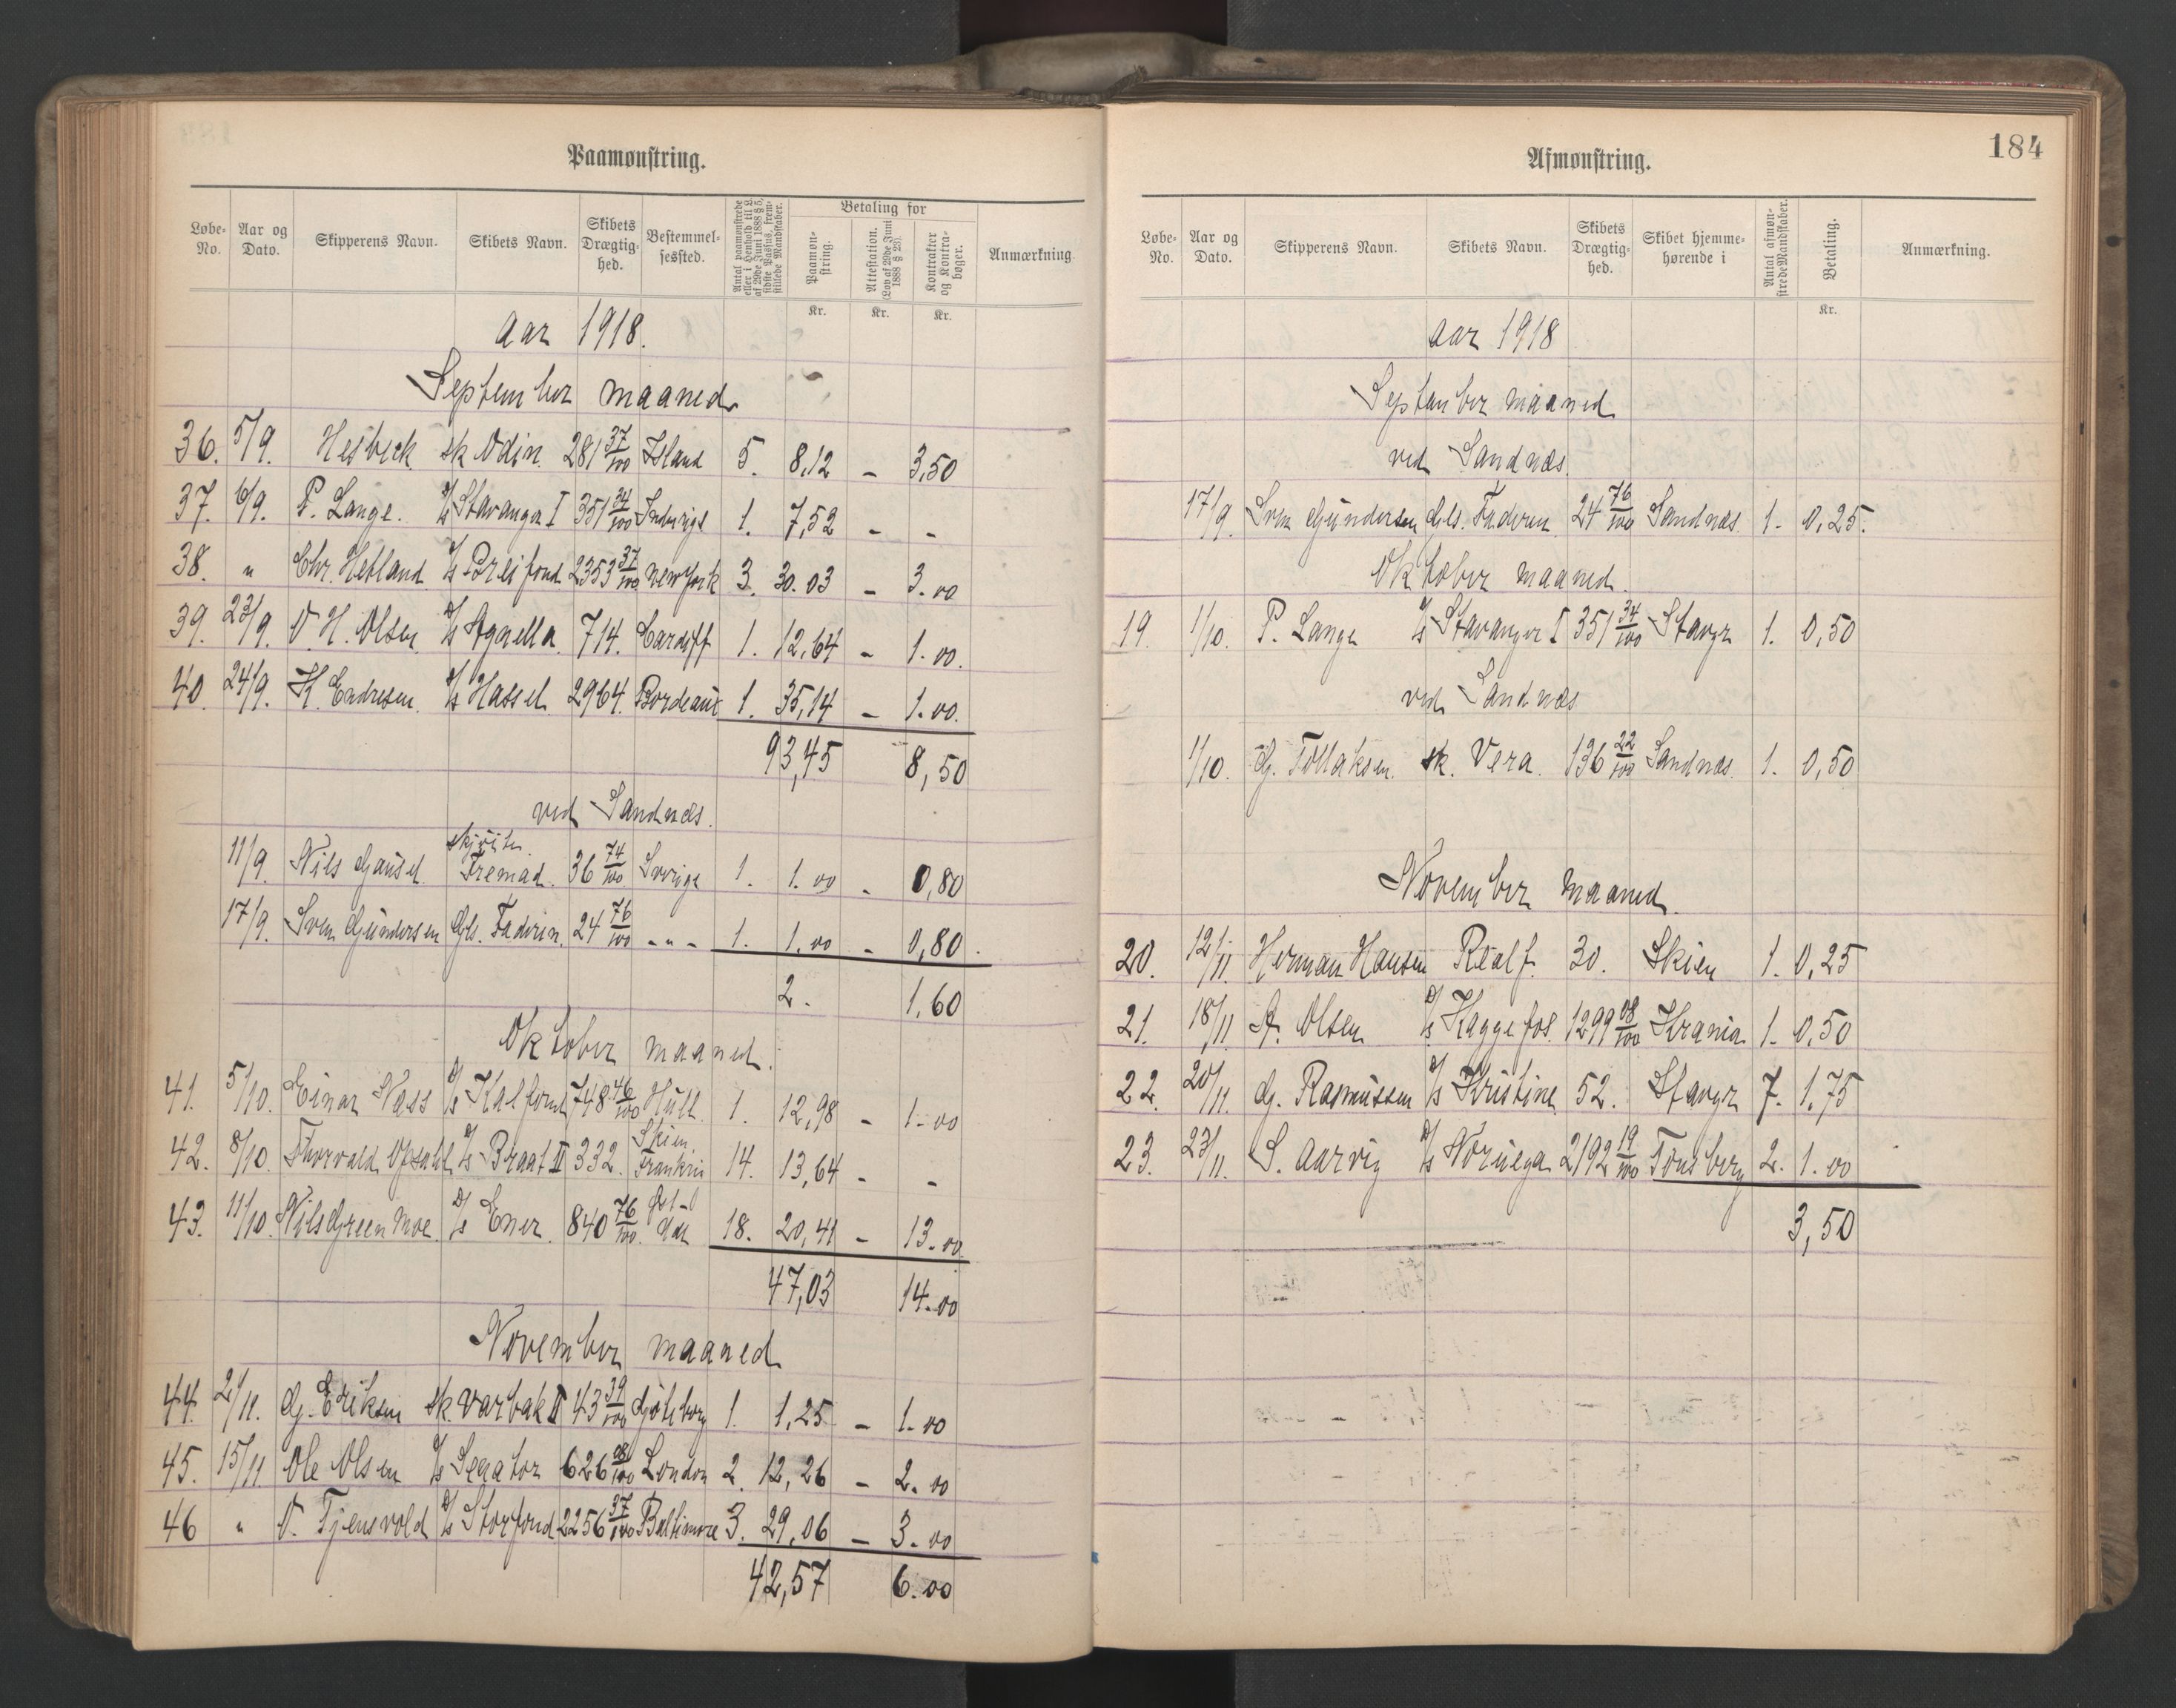 Paamønstring.
Løbe-No. Aar og Dato. Skipperens Navn. Skibets Navn. Skibets Drægtig-hed. Bestemmel-sessted. Antal paamønstrede eller i Henhold til L. af 29de Juni 1888 § 5, sidste Passus, frem-stillede Mandskaber. Betaling for Paamøn-string. Attestation. (Lov af 29de Juni 1888 § 23). Kontrakter og Kontra-bøger. Anmærkning
Kr. Kr. Kr.
Aar 1918.
September maaned
36. 5/9. sk. Odin. 281 37/100 Island 5. 8,12 - 3,50
37. 6/9. P. Lange. D/S Stavanger I 351 34/100 1. 7,52 - -
38. " Chr. Hetland D/S Breifond 2353 37/100 New York 3. 30.03 - 3.00
39. 23/9. O. H. Olsen D/S Agnella 714. Cardiff 1. 12,64 - 1.00.
40. 24/9. K. Endresen. D/S Hassel 2964. Bordeaux 1. 35,14 - 1.00.
93,45 8,50
ved Sandnæs.
11/9. Nils Gausel skjöite Fremad. 36 74/100 Sverige 1. 1.00 - 0,80
17/9. Sven Gundersen Gls. Faderen. 24 76/100 - " - 1. 1.00 - 0,80.
2. 1,60
Oktober maaned.
41. 5/10. Einar Næss D/S Kalfond 748 46/100 Hull 1. 12,98 - 1.00
42. 8/10. Thorvald Opsahl D/S Braat II 332. Skien Frankrig 14. 13,64 - -
43. 11/10. Nils Green Moe. D/S Ener. 840 76/100 18. 20,41 - 13.00
47,03 14.00
November maaned
44. 2/11. G. Eriksen sk. Varbak II 43 39/100 Gøteborg 1. 1,25 - 1.00
45. 15/11 Ole Olsen D/S Senator 626 08/100 London 2. 12,26 - 2.00
46 " O. Tjensvold D/S Storfond 2256 37/100 Baltimore 3. 29,06 - 3.00
42,57 6.00
184
Afmønstring.
Løbe-No. Aar og Dato. Skipperens Navn. Skibets Navn. Skibets Drægtig-hed. Skibet hjemme-hørende i Antal afmøn-strede Mandskaber. Betaling. Anmærkning.
Kr.
Aar 1918
September maaned
ved Sandnæs.
17/9. Sven Gundersen Gls. Faderen. 24 76/100 Sandnæs. 1. 0,25.
Oktober maaned.
19. 1/10. P. Lange D/S Stavanger I 351 34/100 Stavgr 1. 0,50
ved Sandnæs
1/10. G. Tollaksen. sk. Vera. 136 22/100 Sandnæs. 1. 0,50
November maaned.
20. 12/11. Herman Hansen Realf. 30. Skien 1. 0,25
21. 18/11 A. Olsen D/S Haggefos. 1299 08/100 Krania 1. 0,50
22. 20/11. G. Rasmussen D/S Kristine 52. Stavgr 7. 1,75
23. 23/11. S. Aarvig D/S Noruega 2192 19/100 Tønsberg 2. 1.00
3,50